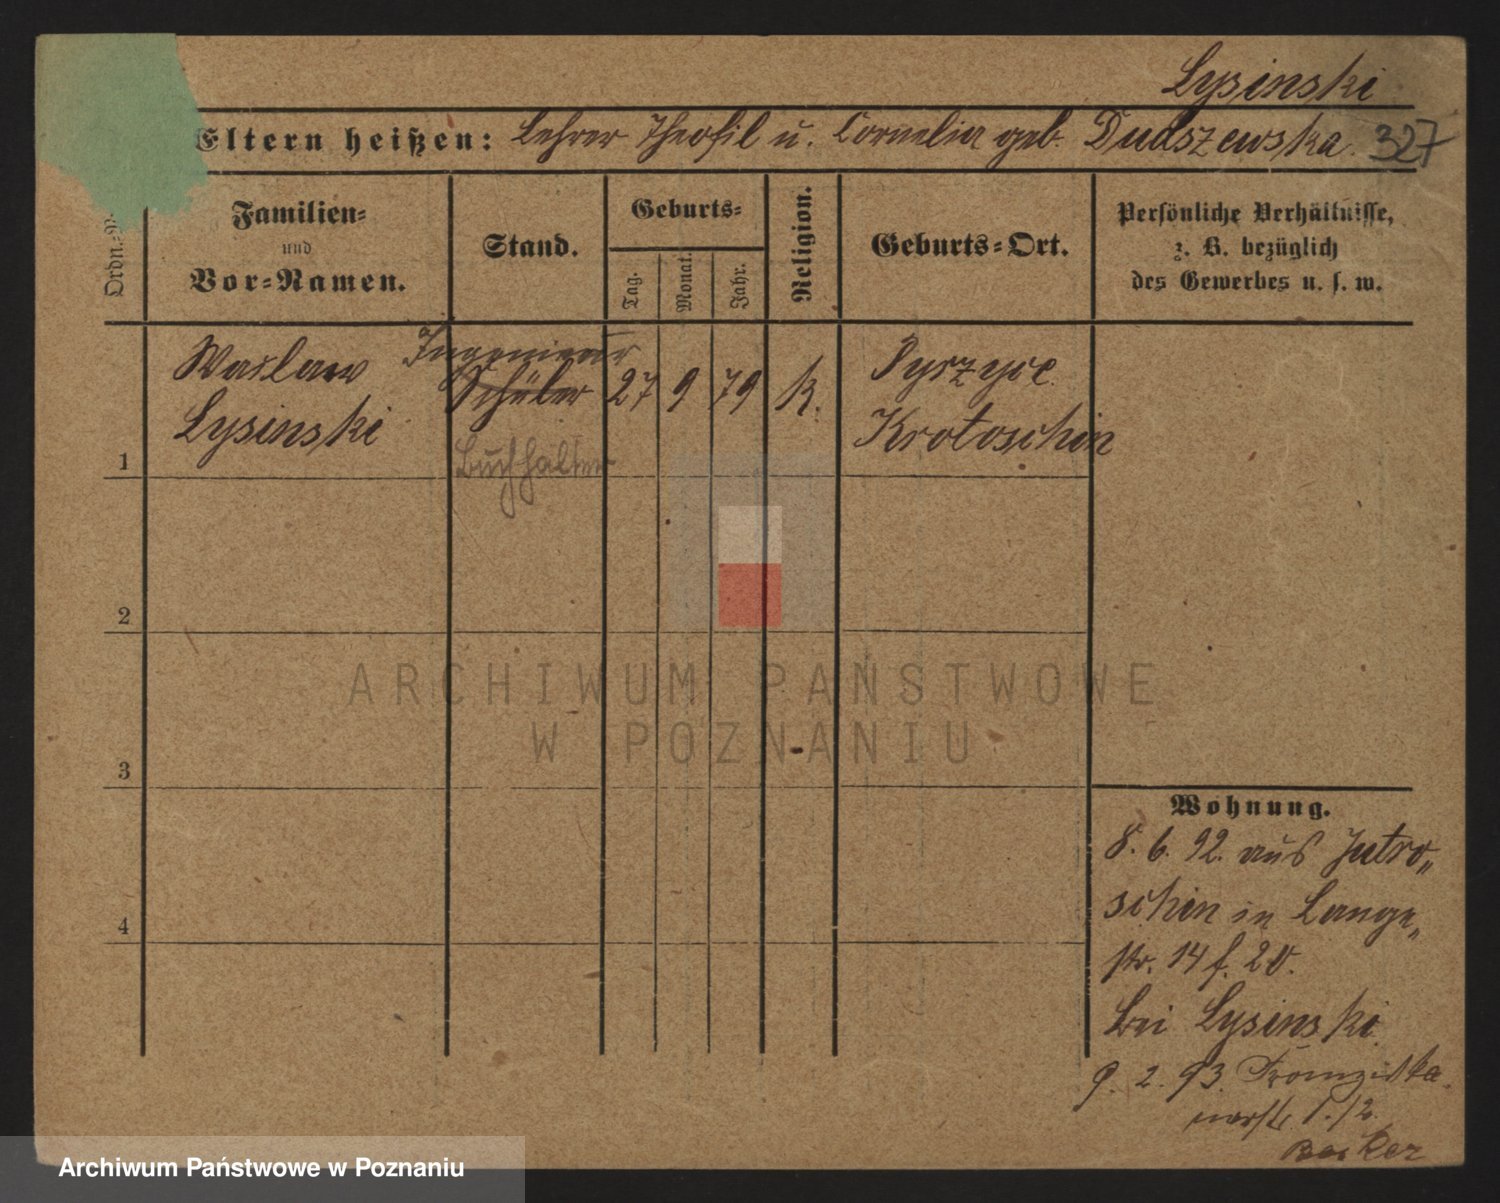 Lysinski
Eltern heißen: Lehrer Theofil u. Cornelia geb. Dudszewska. 327
Ordn.-
Familien-
und
Vor-Namen.
Stand.
Geburts-
Tag.
Monat.
Jahr.
Religion.
Geburts-Ort.
Persönliche Verhältnisse,
z. B. bezüglich
des Gewerbes u. s. w.
Waclaw
Lysinski
Ingenieur
Schüler
Buchhalter
27 9 79 K.
Krotoschin
1
2
3
4
ARCHIWUM PAŃSTWOWE
W POZNANIU
Wohnung.
8. 6. 92. aus Jutro„
schin in Lange„
str. 14 f. 20.
bei Lysinski
9. 2. 93.
Becker
Archiwum Państwowe w Poznaniu